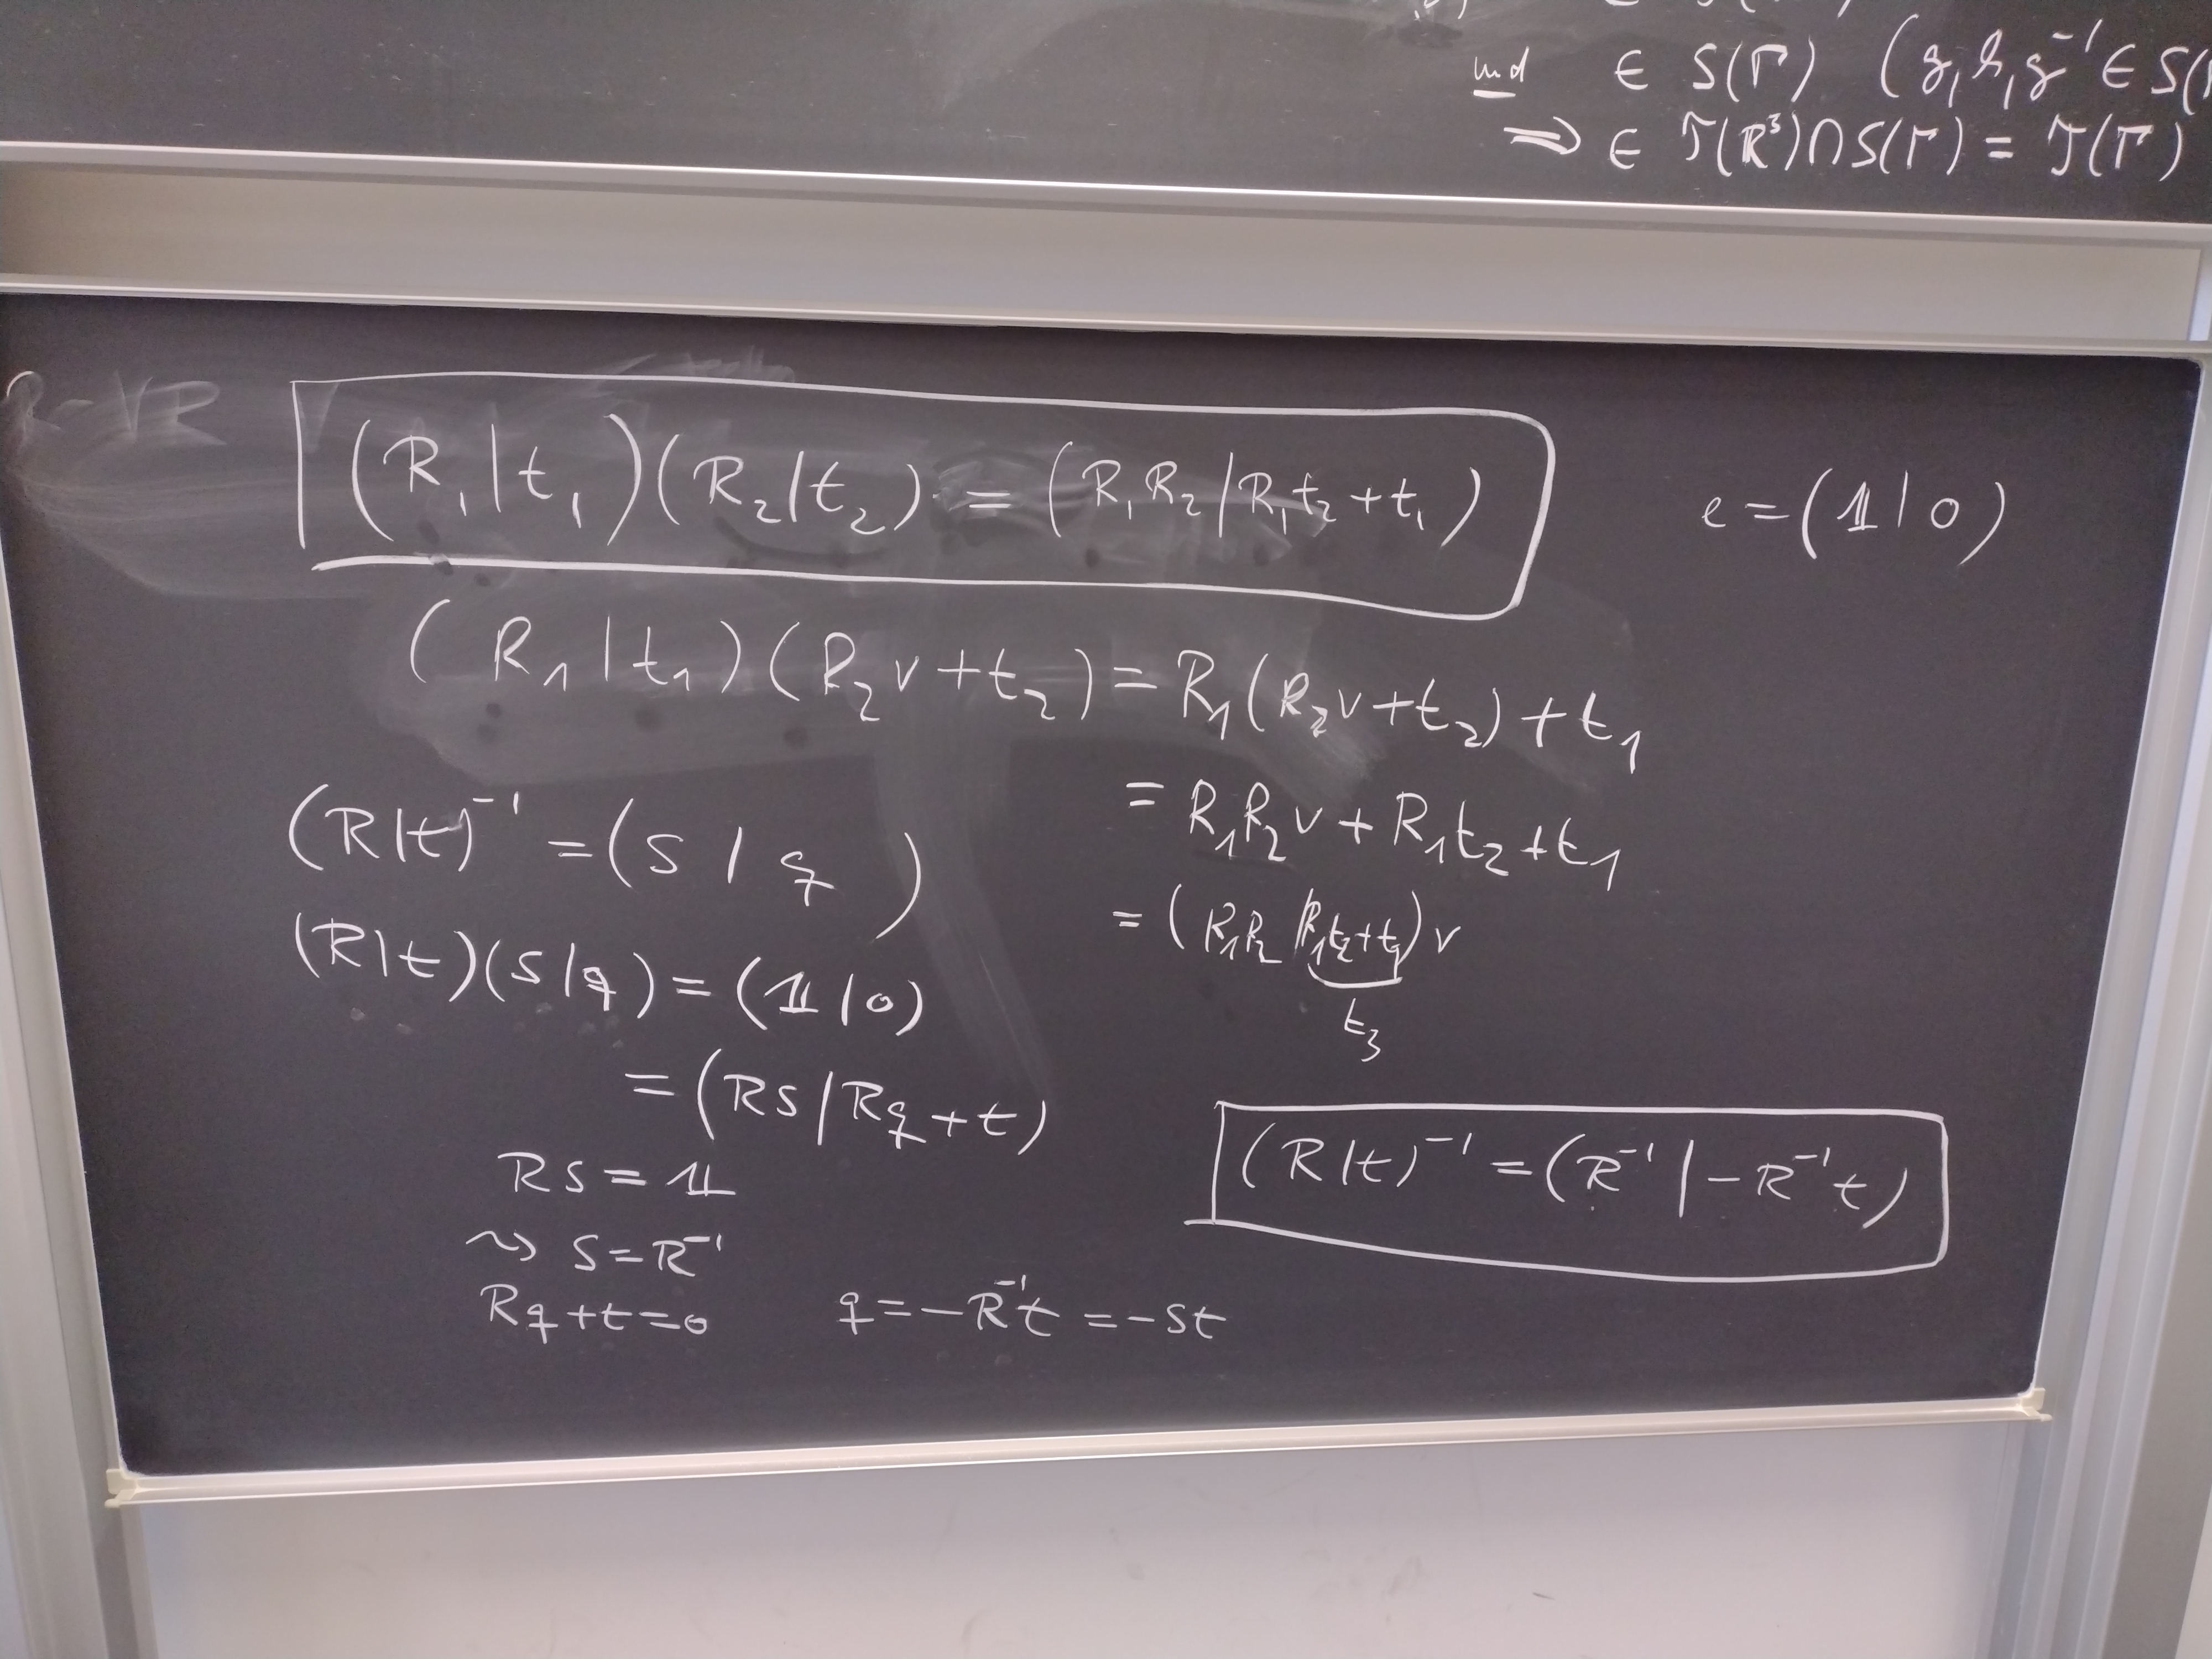 und ∈ S(Γ) (g, h, g⁻¹ ∈ S(
⇒ ∈ T(ℝ³) ∩ S(Γ) = T(Γ)
(R₁|t₁)(R₂|t₂) = (R₁R₂|R₁t₂+t₁)
e = (𝟙|0)
(R₁|t₁)(R₂v+t₂) = R₁(R₂v+t₂)+t₁
= R₁R₂v + R₁t₂+t₁
= (R₁R₂|R₁t₂+t₁)v
t₃
(R|t)⁻¹ = (S|q)
(R|t)(S|q) = (𝟙|0)
= (RS|Rq+t)
RS = 𝟙
⤳ S = R⁻¹
Rq+t=0 q = -R⁻¹t = -St
(R|t)⁻¹ = (R⁻¹|-R⁻¹t)